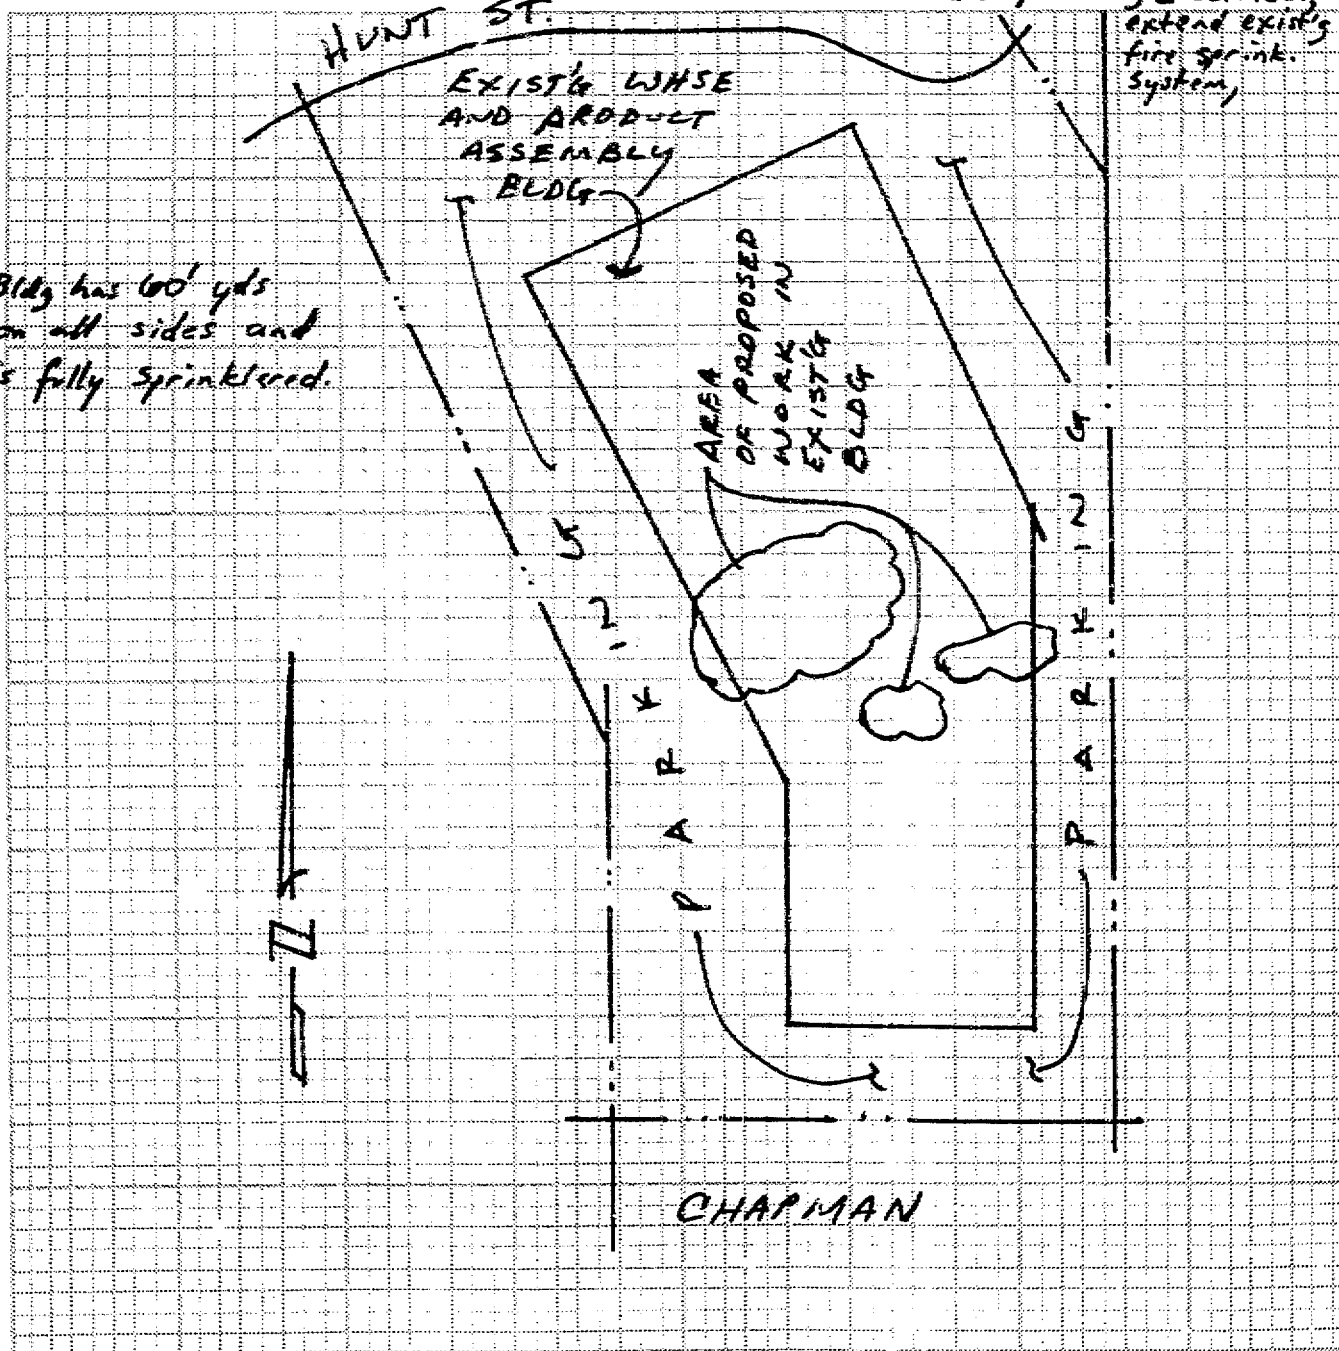 HUNT ST.
extend exist'g
fire sprink.
system,
EXIST'G WHSE
AND PRODUCT
ASSEMBLY
BLDG
Bldg has 60' yds
on all sides and
is fully sprinklered.
AREA
OF PROPOSED
WORK IN
EXIST'G
BLDG
PARKING
PARKING
N
CHAPMAN